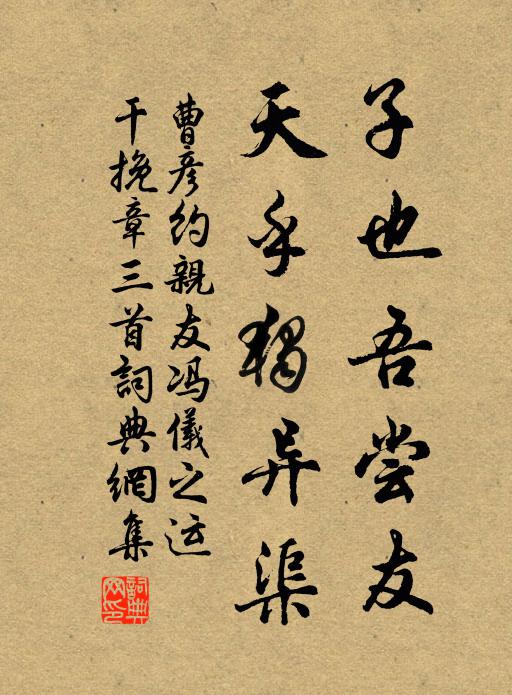 子也吾尝友
天乎独异渠
曹彦约親友冯儀之运
干挽章三首詞典網集
詞典
网印